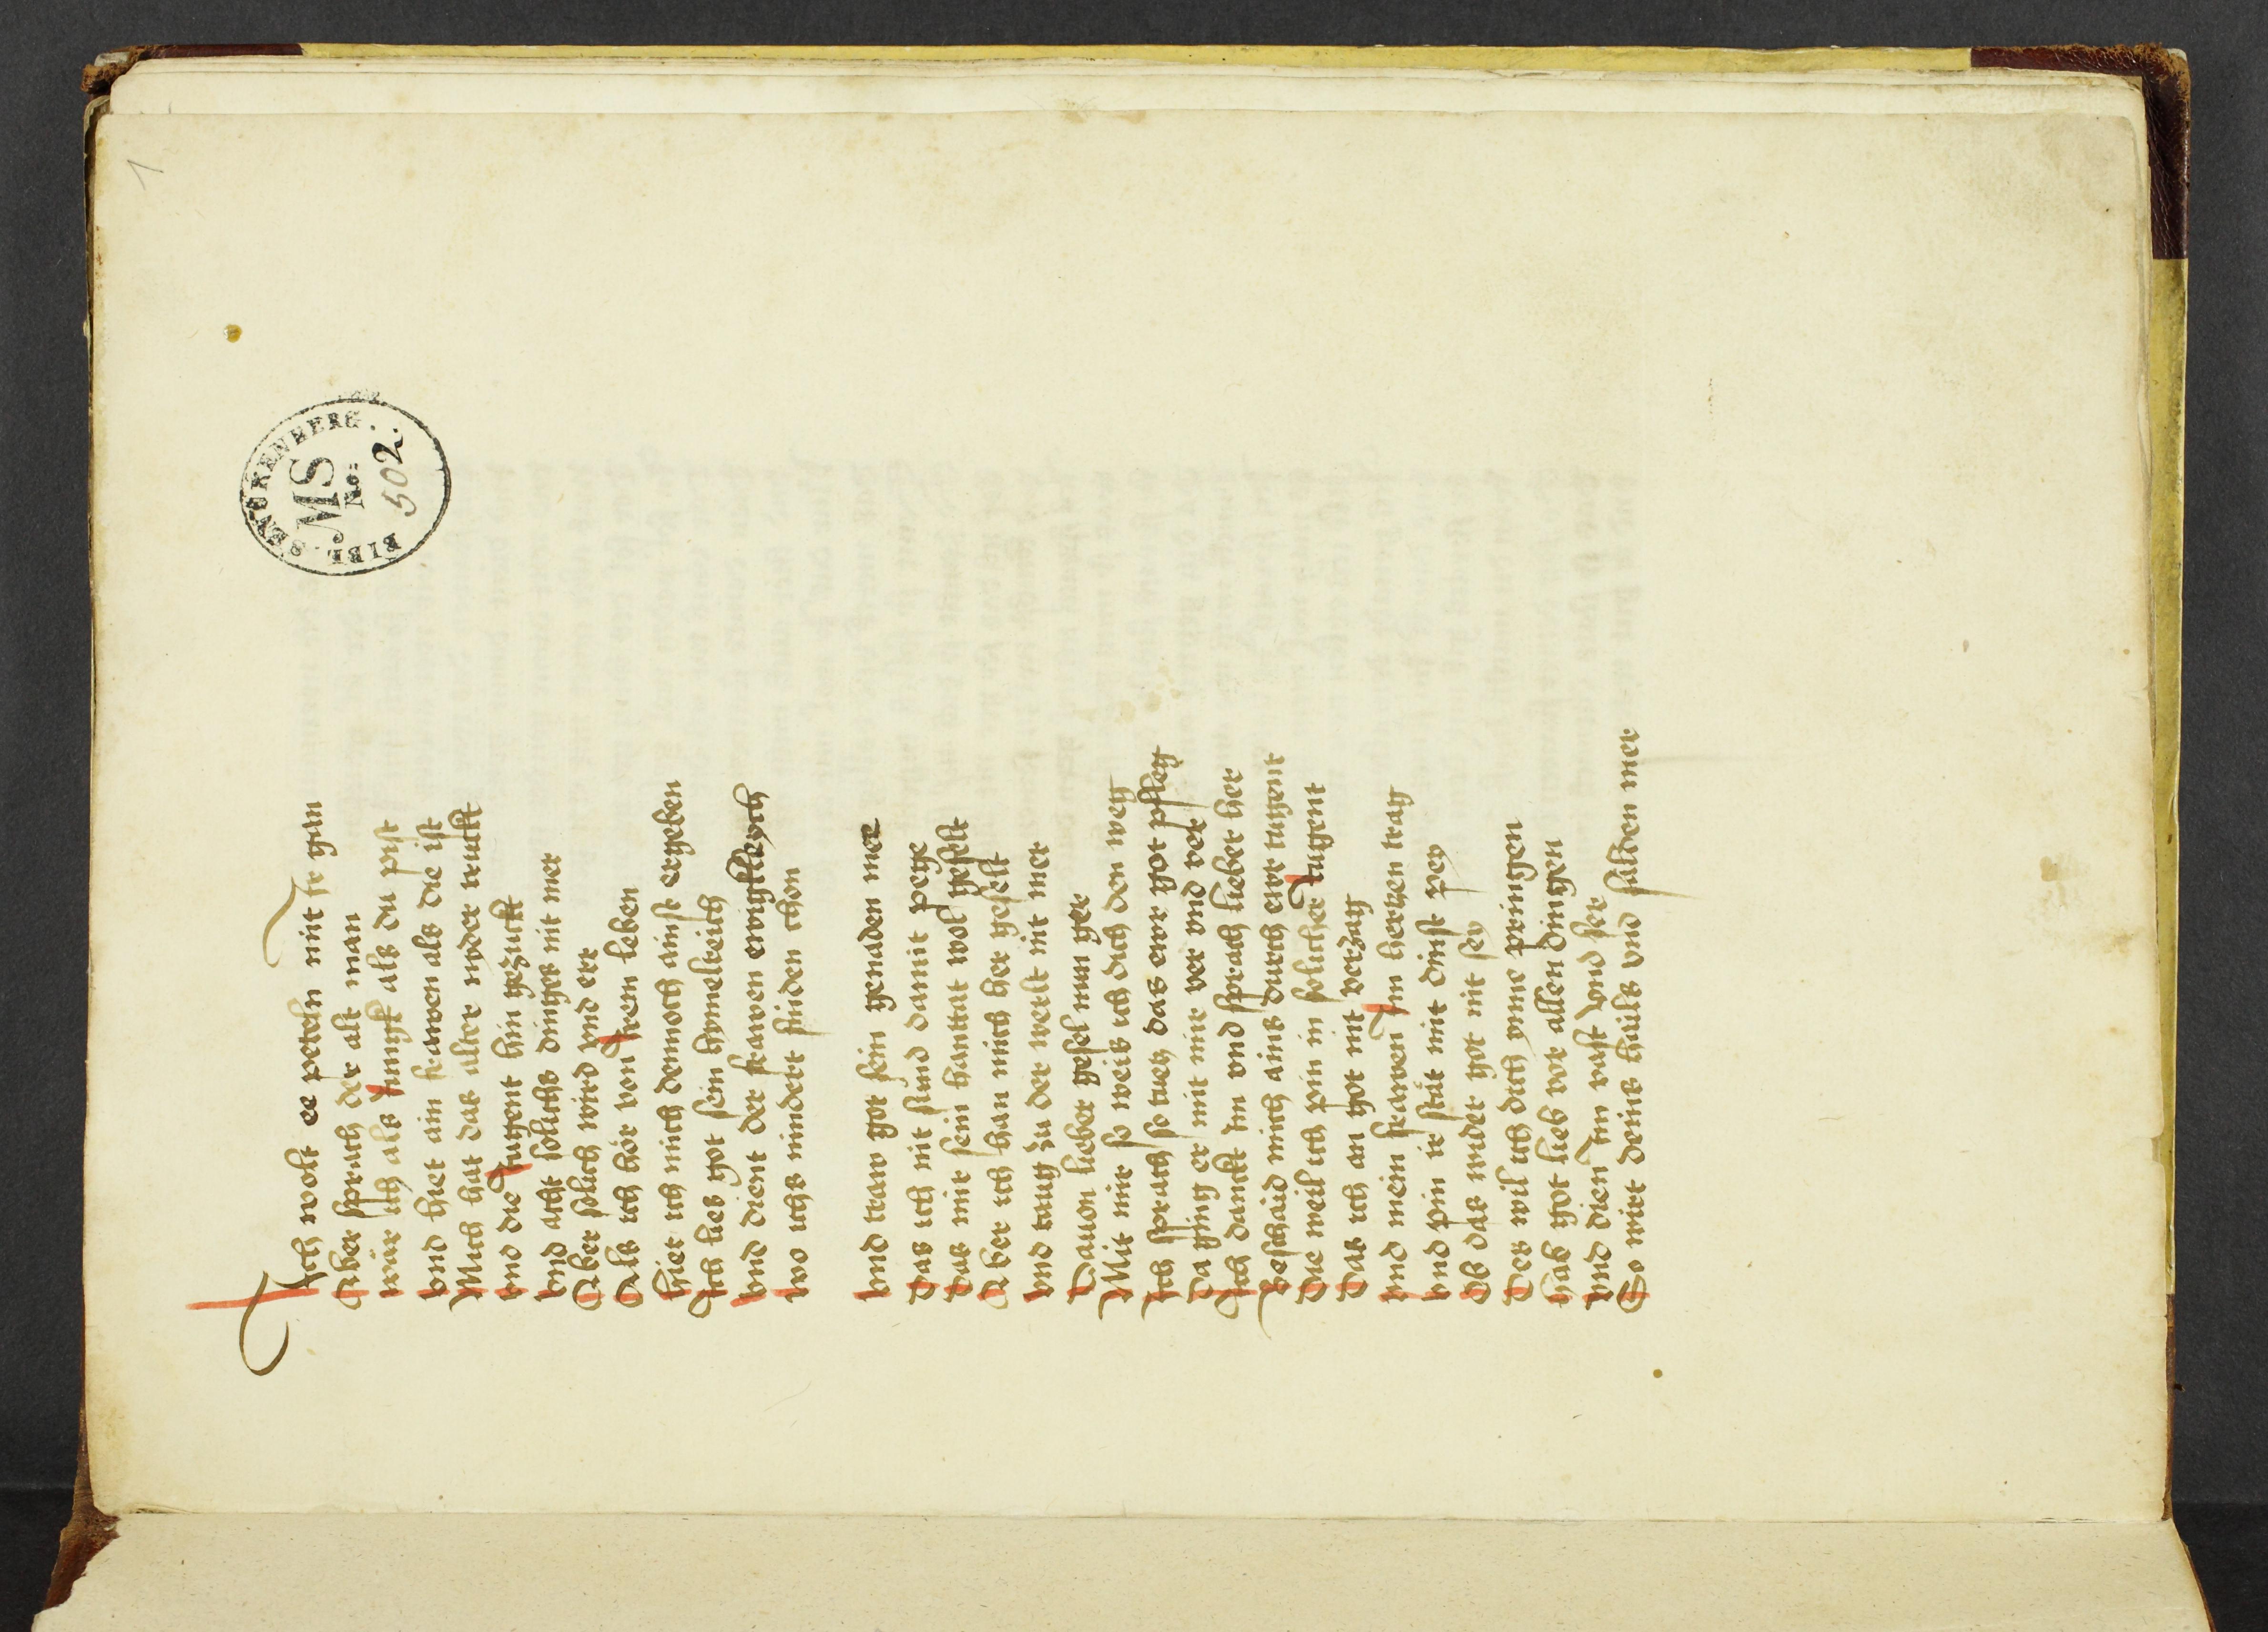 1
BIBL. SENCKENBERG.
MS
No:
502.
Ich wolt ee peteln mit Ir gan
Aber sprach der alt man
wär ich als Jungk als du pist
vnd hiet ain frawen als die ist
Mich hat das alter nyder truckt
vnd die Jugent hin gezuckt
vnd acht solichs dinges nit mer
Aber solich wird vnd err
Als ich hör von Irem leben
hiet ich mich dennoch ainst ergeben
Ich lies got sein hymelreich
vnd dient der frawen ewigkleych
wo ichs mindert finden chon
vnd traw got sein genaden mer
Das ich nit sünd damit pege
Das mir sein hanttat wol gefelt
Aber ich han mich her geselt
vnd taug zu der werlt nit mer
Dauon lieber gesel mun ger
Mit mir so weis ich dich den weg
Ich sprach so tuetz das ewr got pfleg
Da ging er mit mir ver vnd ver
Ich danckt Im vnd sprach lieber her
Beschaid mich ains durch ewr tugent
Die weil ich pin in solicher Jugent
Das ich an got nit verzag
vnd mein frawen Im hertzen trag
vnd pin ir stät mit dinst pey
Ob das wider got nit sey
Des wil ich dich ynne pringen
Hab got lieb vor allen dingen
vnd dien Im vast vnd ser
So wirt deins hails vnd sälden mer